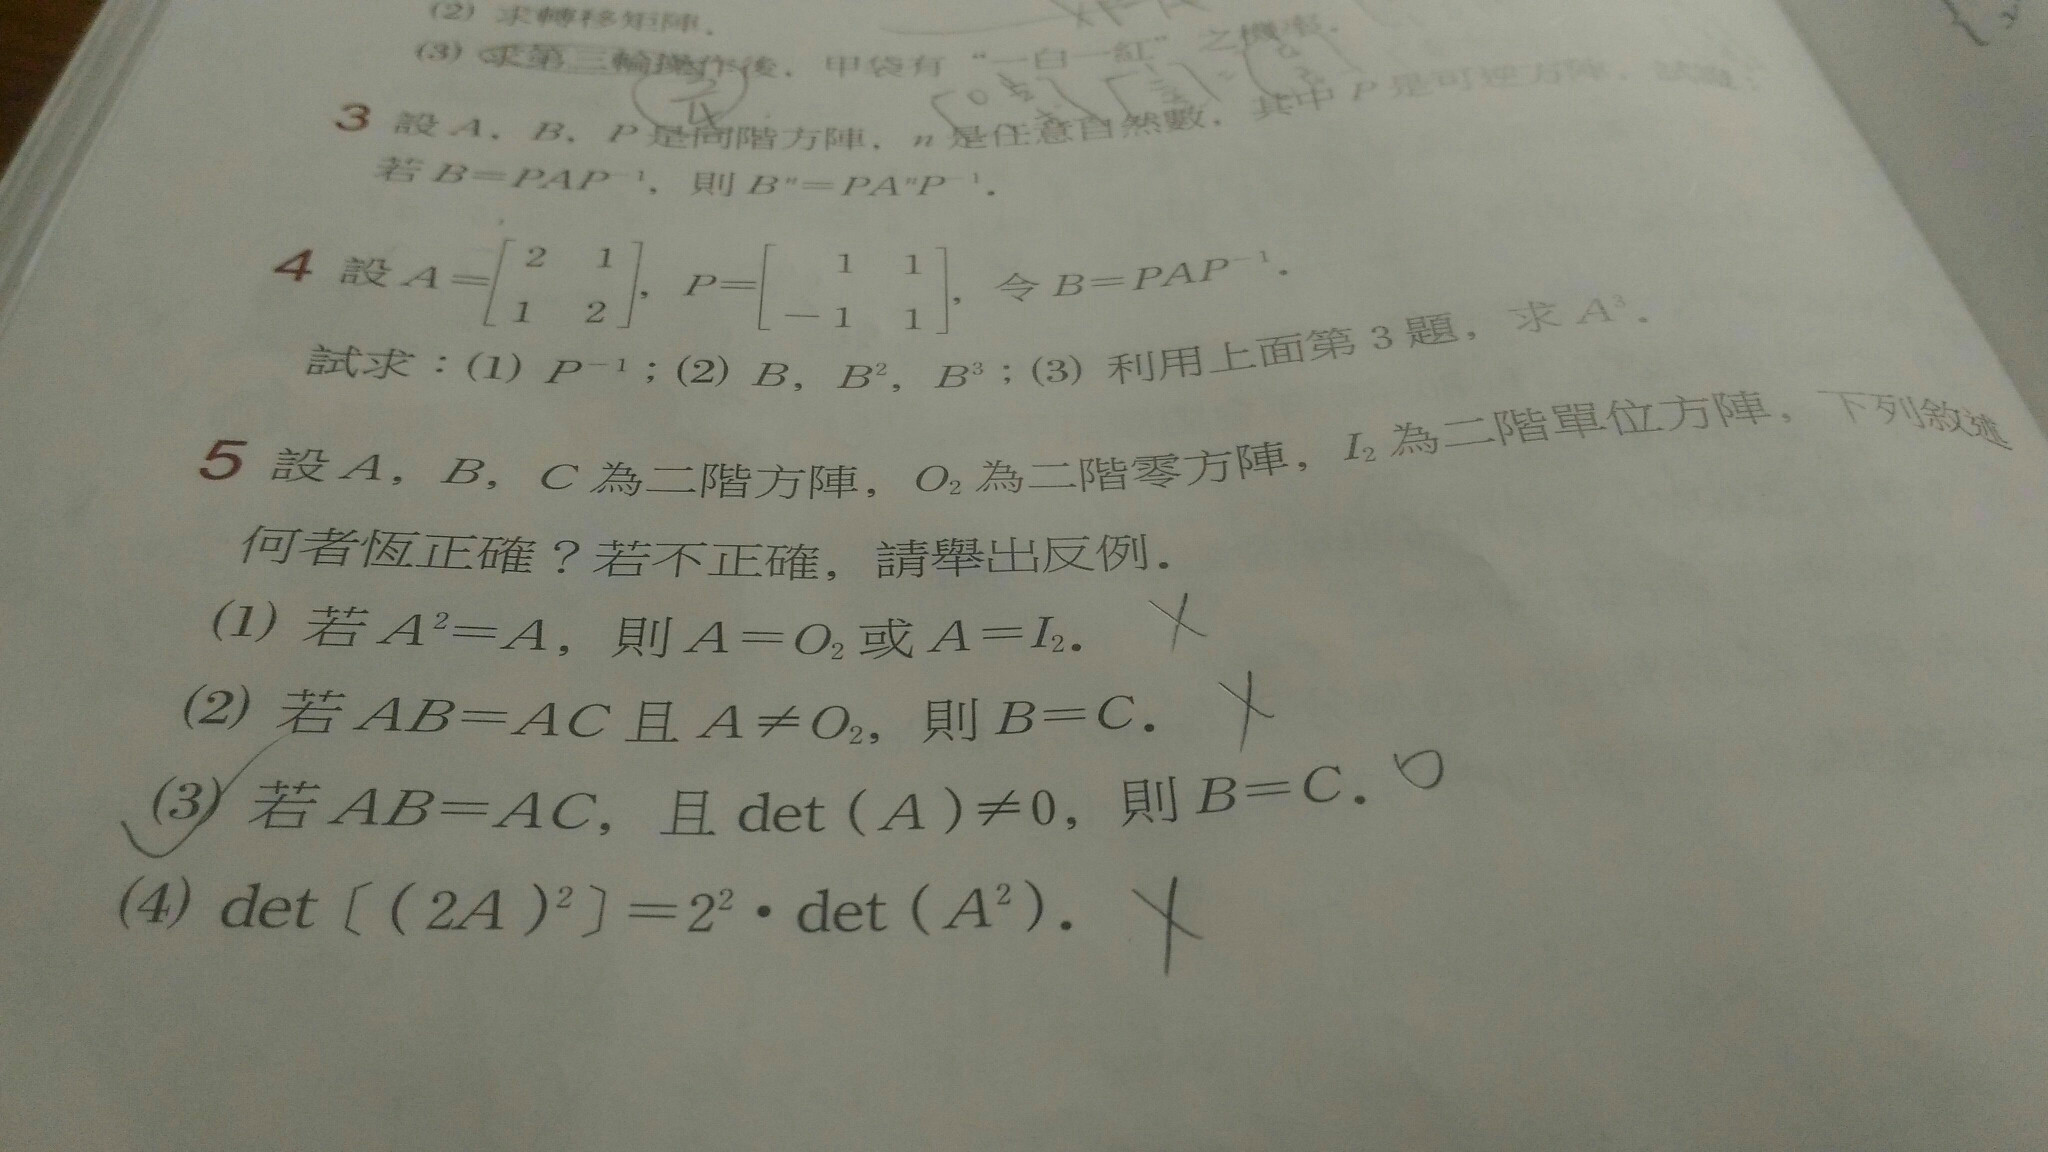 (2) 求轉移矩陣．
(3) 求第三輪操作後，甲袋有“一白一紅”之機率．
3 設 A，B，P 是同階方陣，n 是任意自然數，其中 P 是可逆方陣，試證：
若 B=PAP⁻¹，則 Bⁿ=PAⁿP⁻¹．
4 設 A=[2 1; 1 2]，P=[1 1; −1 1]，令 B=PAP⁻¹．
試求：(1) P⁻¹；(2) B，B²，B³；(3) 利用上面第 3 題，求 A³．
5 設 A，B，C 為二階方陣，O₂ 為二階零方陣，I₂ 為二階單位方陣，下列敘述
何者恆正確？若不正確，請舉出反例．
(1) 若 A²=A，則 A=O₂ 或 A=I₂． ×
(2) 若 AB=AC 且 A≠O₂，則 B=C． ×
(3) 若 AB=AC，且 det(A)≠0，則 B=C． ○
(4) det〔(2A)²〕=2²・det(A²)． ×